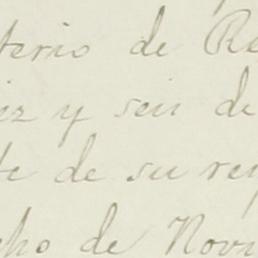 terio de Re
iez y seis de
te de su res
cho de Novi